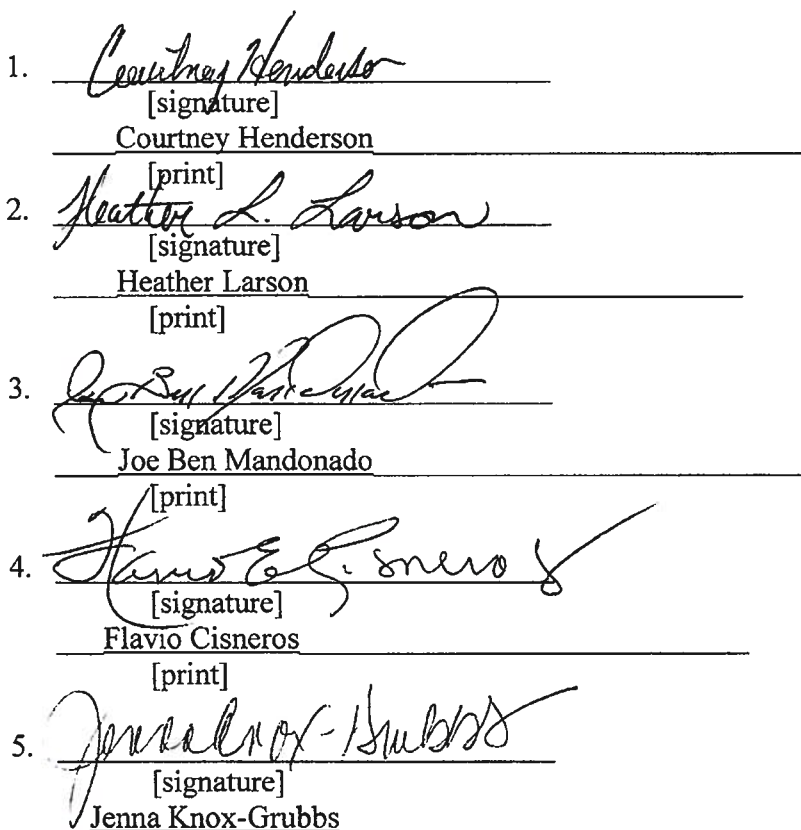 1. Courtney Henderson
[signature]
Courtney Henderson
[print]
2. Heather L. Larson
[signature]
Heather Larson
[print]
3. Joe Ben
[signature]
Joe Ben Mandonado
[print]
4. Flavio E. Cisneros
[signature]
Flavio Cisneros
[print]
5. Jenna Knox-Grubbs
[signature]
Jenna Knox-Grubbs